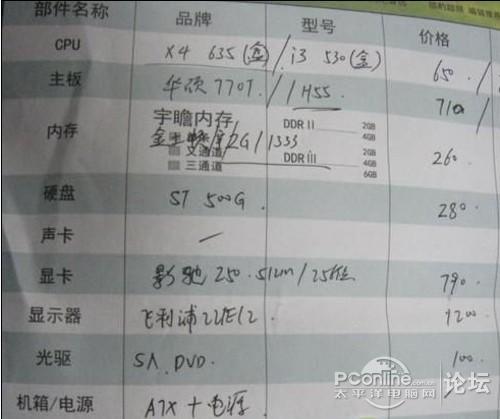 部件名称 品牌 型号 价格
CPU X4 635(盒)/i3 530(盒) 650
主板 华硕 770T//H55 710
宇瞻内存 DDR II 2GB
4GB
内存 2G/1333 260
双通道 DDR III 2GB
4GB
三通道 6GB
硬盘 ST 500G. 280
声卡 —
显卡 影驰 250.512m/256位 790
显示器 飞利浦 1200
光驱 SA.DVD. 100
机箱/电源 ATX+电源
PConline.com.cn
太平洋电脑网 论坛